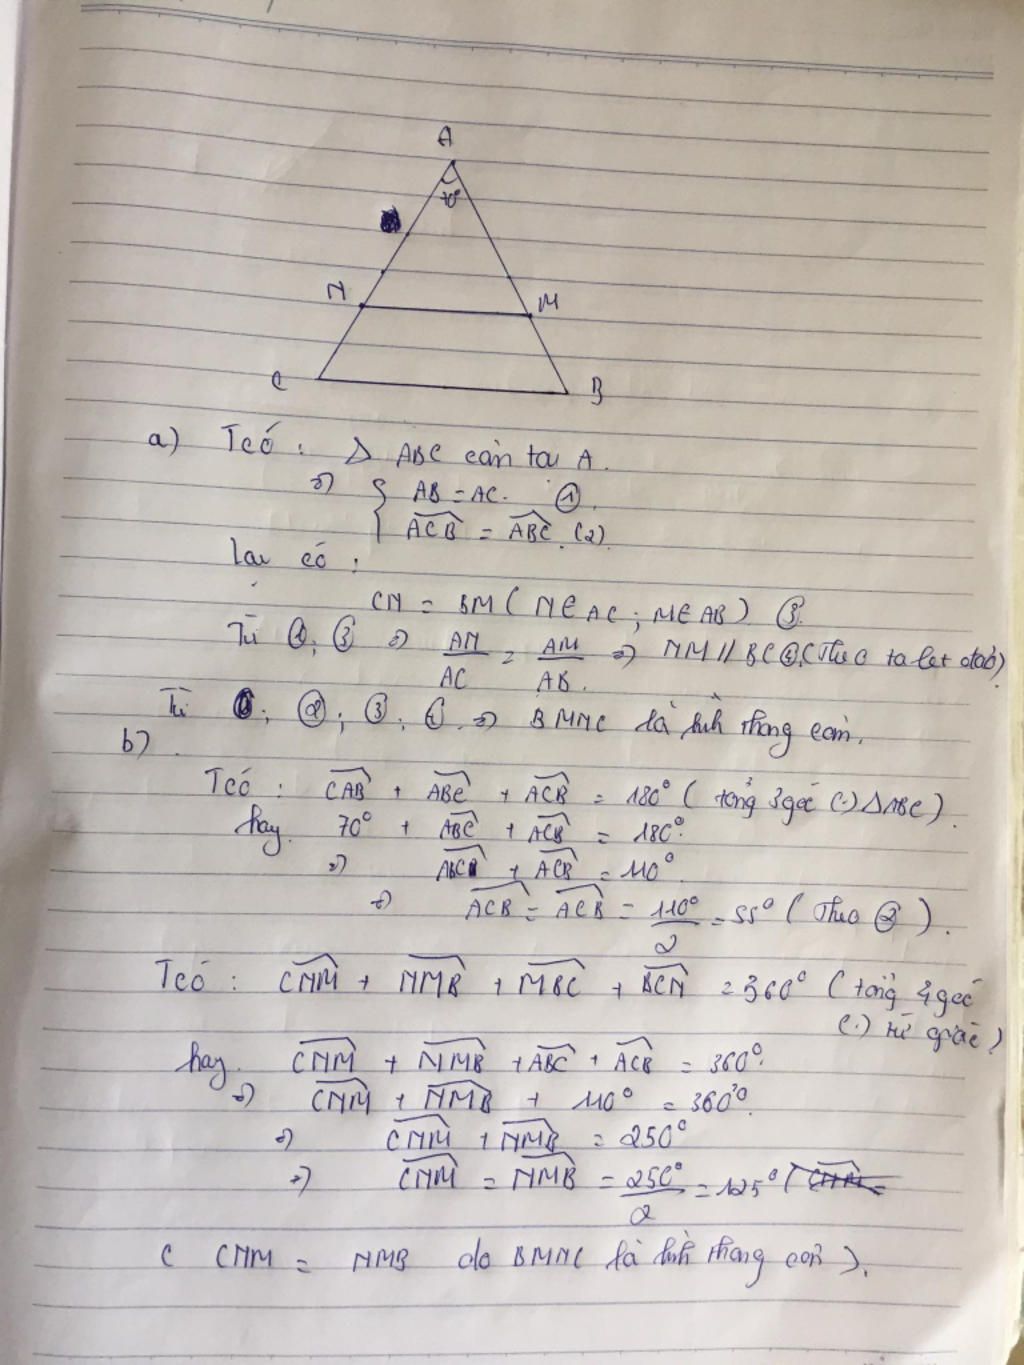 A
70°
N
M
C
B
a) Tcó : Δ ABC cân tại A.
=> { AB = AC. ①
ACB = ABC. (2)
Lại có :
CN = BM ( N ∈ AC ; M ∈ AB ) ③
Từ ①, ③ => AN/AC = AM/AB. => NM // BC ④ (Theo ta let đảo)
Từ ; ②; ③; ④ => BMNC là hình thang cân.
b)
Tcó : CAB + ABC + ACB = 180° ( tổng 3 góc (.) ΔABC ).
hay 70° + ABC + ACB = 180°.
=> ABC + ACB = 110°.
=> ACB = ACB = 110°/2 = 55° ( Theo ② ).
Tcó : CNM + NMB + MBC + BCN = 360° ( tổng 4 góc
(.) tứ giác )
hay. CNM + NMB + ABC + ACB = 360°.
=> CNM + NMB + 110° = 360°.
=> CNM + NMB = 250°
=> CNM = NMB = 250°/2 = 125° ( CNM =
( CNM = NMB do BMNC là hình thang cân ).